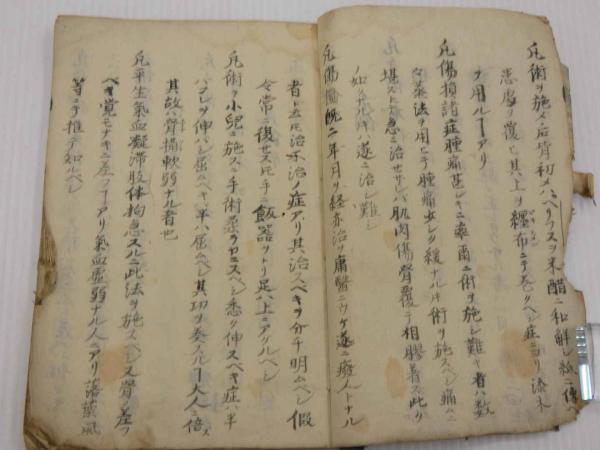 凡術ヲ施メ后骨初メハヘリフスヲ米醋ニ和解シ紙ニ傳ヘ
患處ヲ覆ヒ其上ヲ纒布ニテ巻クヘシ症ニヨリ漆木
ヲ用ルーアリ
凡傷損諸症腫痛甚シキニ率爾ニ術ヲ施シ難キ者ハ数
々蒸法ヲ用ヒテ腫痛少シク緩ナル片術ヲ施スヘシ痛ムニ
堪ストテ急ニ治セサレハ肌肉傷骨覆テ相膠着ス此ノ
如クナル片ハ遂ニ治シ難シ
凡傷損既ニ年月ヲ経亦治ヲ庸醫ニウケ遂ニ癈人トナル
者ト云𪜈治不治ノ症アリ其治スヘキヲ分チ明ムヘシ假
令常ニ復セス𪜈手ニ飯器ヲトリ足ハ上ニアクルヘシ
凡術ヲ小兒ニ施スニ手術柔ラカニスヘシ悉ク伸スヘキ症ハ半
ハフレヲ伸ハシ屈ムヘキハ半ハ屈ムヘシ其功ヲ奏スルー大人ニ倍ス
其故ハ骨操軟弱ナル者也
凡平生氣血凝滞肢体拘急スルニ此法ヲ施スヘシ又骨ノ差フ
ヘキ覚モナキニ差フーアリ氣血虚弱ナル人ニアリ落葉風
等ニテ推テ知ルヘシ